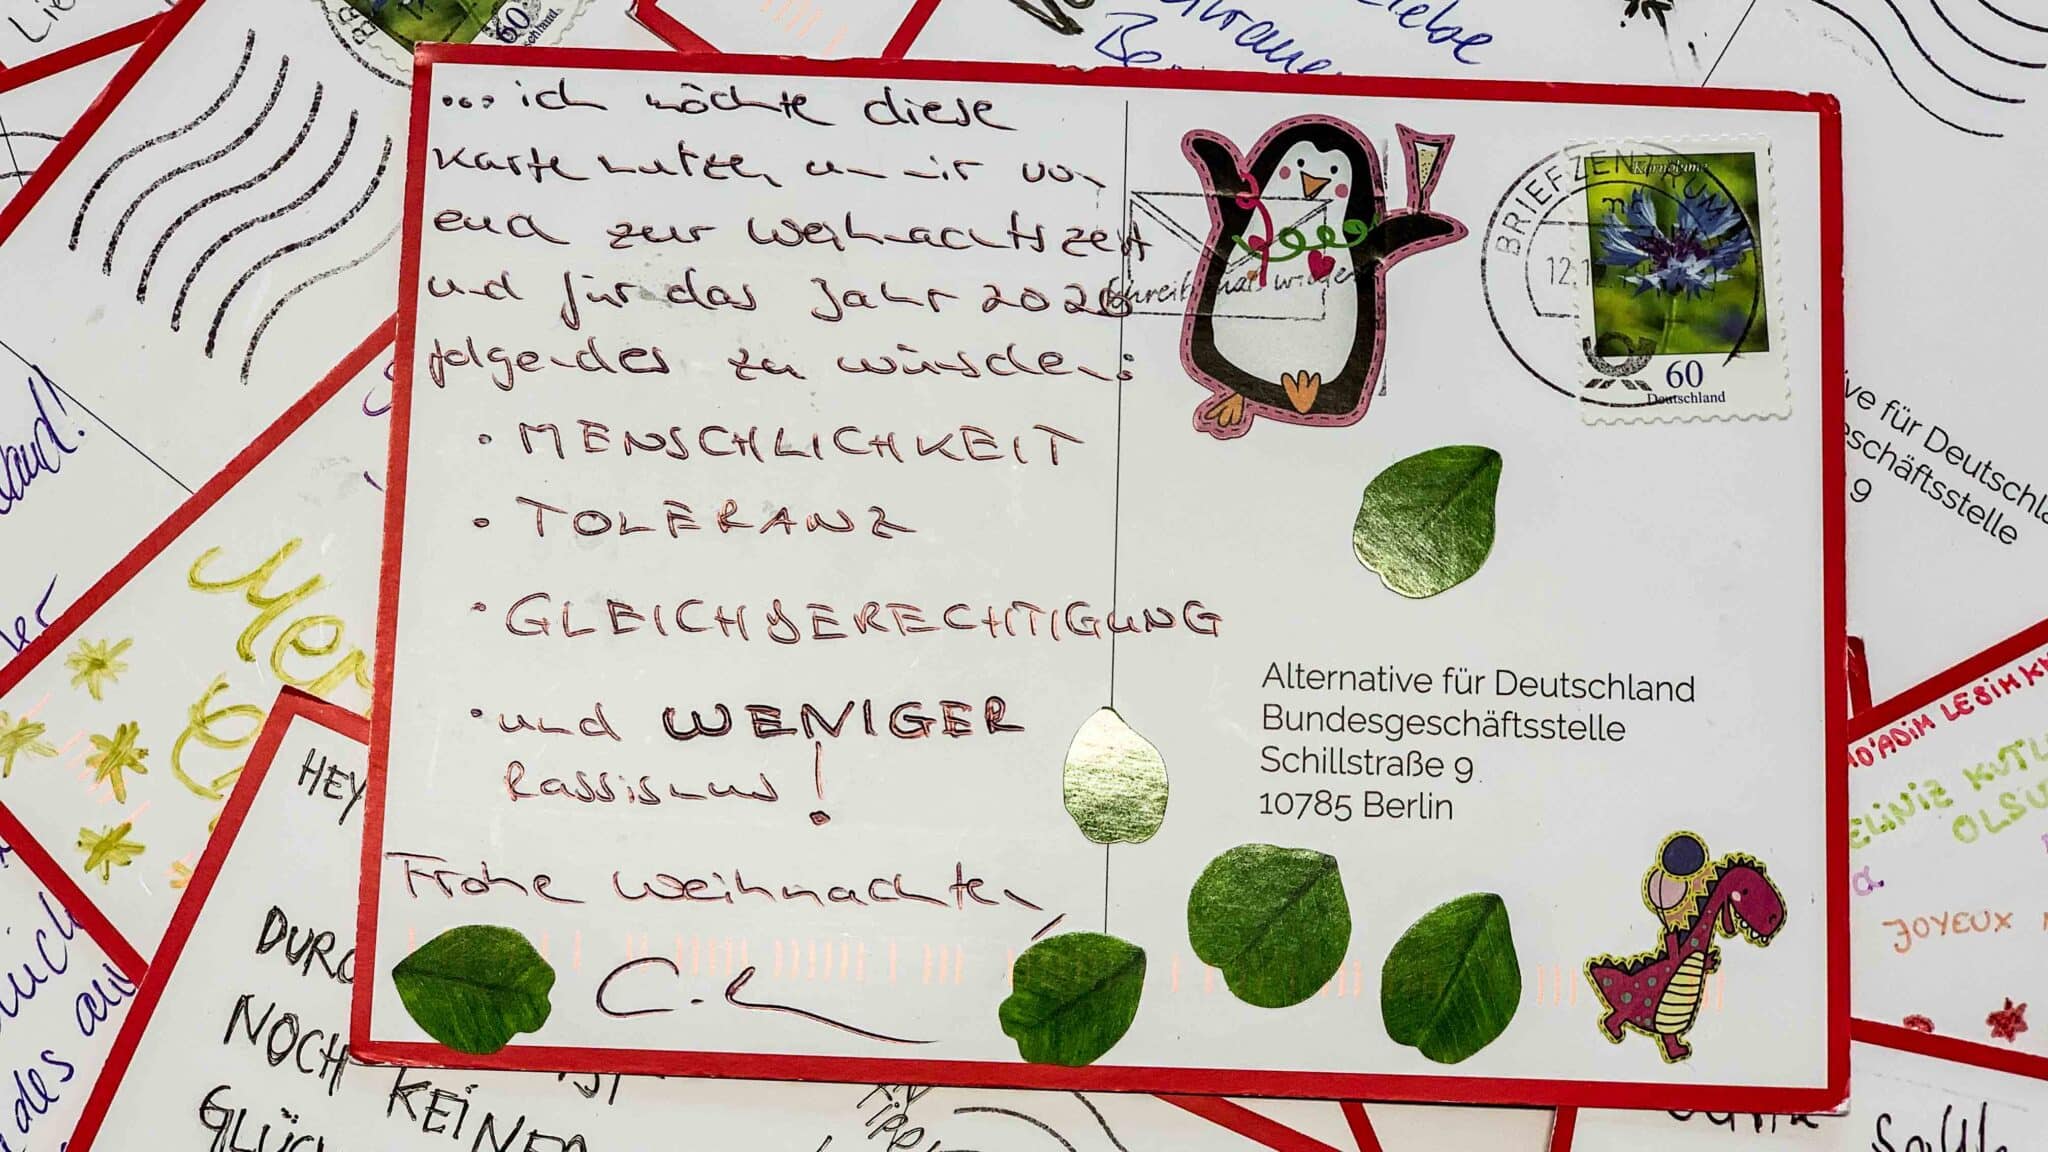 ... ich möchte diese
Karte nutzen um mir von
euch zur Weihnachtszeit
und für das Jahr 2020
folgendes zu wünschen:
• MENSCHLICHKEIT
• TOLERANZ
• GLEICHBERECHTIGUNG
• und WENIGER
Rassismus!
Frohe Weihnachten,
C.
BRIEFZENTRUM
12.1
Schreib mal wieder
Kornblume
60
Deutschland
Alternative für Deutschland
Bundesgeschäftsstelle
Schillstraße 9
10785 Berlin
60
schland
iebe
Be
and!
Mer
HEY
DURC
NOCH KEINEN
GLÜC
des
ve für Deutschla
eschäftsstelle
9
AD'ADIM LESIMKH
ELINIZ KUTL
OLSU
JOYEUX